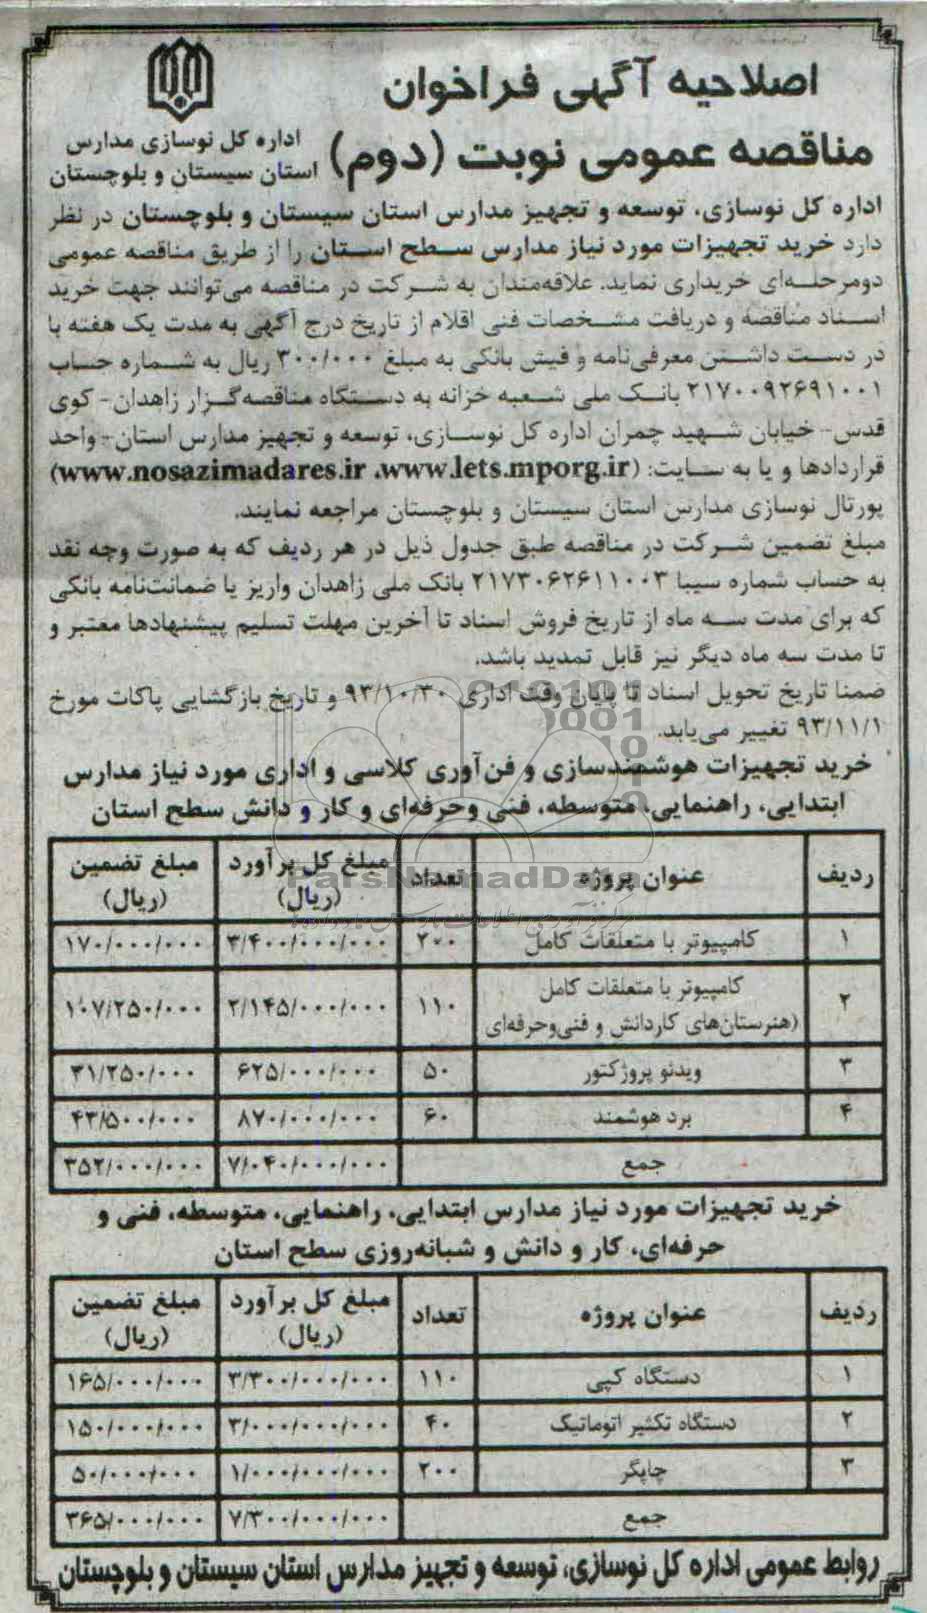 اصلاحیه آگهی فراخوان
مناقصه عمومی نوبت (دوم)
اداره کل نوسازی مدارس
استان سیستان و بلوچستان
اداره کل نوسازی، توسعه و تجهیز مدارس استان سیستان و بلوچستان در نظر
دارد خرید تجهیزات مورد نیاز مدارس سطح استان را از طریق مناقصه عمومی
دومرحله‌ای خریداری نماید. علاقه‌مندان به شرکت در مناقصه می‌توانند جهت خرید
اسناد مناقصه و دریافت مشخصات فنی اقلام از تاریخ درج آگهی به مدت یک هفته با
در دست داشتن معرفی‌نامه و فیش بانکی به مبلغ ۳۰۰/۰۰۰ ریال به شماره حساب
۲۱۷۰۰۹۲۶۹۱۰۰۱ بانک ملی شعبه خزانه به دستگاه مناقصه‌گزار زاهدان- کوی
قدس- خیابان شهید چمران اداره کل نوسازی، توسعه و تجهیز مدارس استان- واحد
قراردادها و یا به سایت: (www.nosazimadares.ir ،www.lets.mporg.ir)
پورتال نوسازی مدارس استان سیستان و بلوچستان مراجعه نمایند.
مبلغ تضمین شرکت در مناقصه طبق جدول ذیل در هر ردیف که به صورت وجه نقد
به حساب شماره سیبا ۲۱۷۳۰۶۲۶۱۱۰۰۳ بانک ملی زاهدان واریز یا ضمانت‌نامه بانکی
که برای مدت سه ماه از تاریخ فروش اسناد تا آخرین مهلت تسلیم پیشنهادها معتبر و
تا مدت سه ماه دیگر نیز قابل تمدید باشد.
ضمنا تاریخ تحویل اسناد تا پایان وقت اداری ۹۳/۱۰/۳۰ و تاریخ بازگشایی پاکات مورخ
۹۳/۱۱/۱ تغییر می‌یابد.
خرید تجهیزات هوشمندسازی و فن‌آوری کلاسی و اداری مورد نیاز مدارس
ابتدایی، راهنمایی، متوسطه، فنی وحرفه‌ای و کار و دانش سطح استان
ردیف عنوان پروژه تعداد مبلغ کل برآورد (ریال) مبلغ تضمین (ریال)
۱ کامپیوتر با متعلقات کامل ۲۰۰ ۳/۴۰۰/۰۰۰/۰۰۰ ۱۷۰/۰۰۰/۰۰۰
۲ کامپیوتر با متعلقات کامل (هنرستان‌های کاردانش و فنی‌وحرفه‌ای ۱۱۰ ۲/۱۴۵/۰۰۰/۰۰۰ ۱۰۷/۲۵۰/۰۰۰
۳ ویدئو پروژکتور ۵۰ ۶۲۵/۰۰۰/۰۰۰ ۳۱/۲۵۰/۰۰۰
۴ برد هوشمند ۶۰ ۸۷۰/۰۰۰/۰۰۰ ۴۳/۵۰۰/۰۰۰
جمع ۷/۰۴۰/۰۰۰/۰۰۰ ۳۵۲/۰۰۰/۰۰۰
خرید تجهیزات مورد نیاز مدارس ابتدایی، راهنمایی، متوسطه، فنی و
حرفه‌ای، کار و دانش و شبانه‌روزی سطح استان
ردیف عنوان پروژه تعداد مبلغ کل برآورد (ریال) مبلغ تضمین (ریال)
۱ دستگاه کپی ۱۱۰ ۳/۳۰۰/۰۰۰/۰۰۰ ۱۶۵/۰۰۰/۰۰۰
۲ دستگاه تکثیر اتوماتیک ۴۰ ۳/۰۰۰/۰۰۰/۰۰۰ ۱۵۰/۰۰۰/۰۰۰
۳ چاپگر ۲۰۰ ۱/۰۰۰/۰۰۰/۰۰۰ ۵۰/۰۰۰/۰۰۰
جمع ۷/۳۰۰/۰۰۰/۰۰۰ ۳۶۵/۰۰۰/۰۰۰
روابط عمومی اداره کل نوسازی، توسعه و تجهیز مدارس استان سیستان و بلوچستان
ParsNamadData